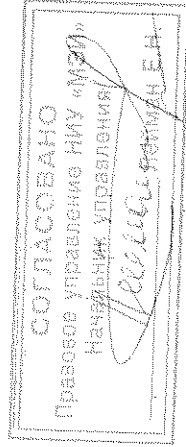 СОГЛАСОВАНО
Правовое управление НИУ «МЭИ»
Начальник управления
Е.Н.